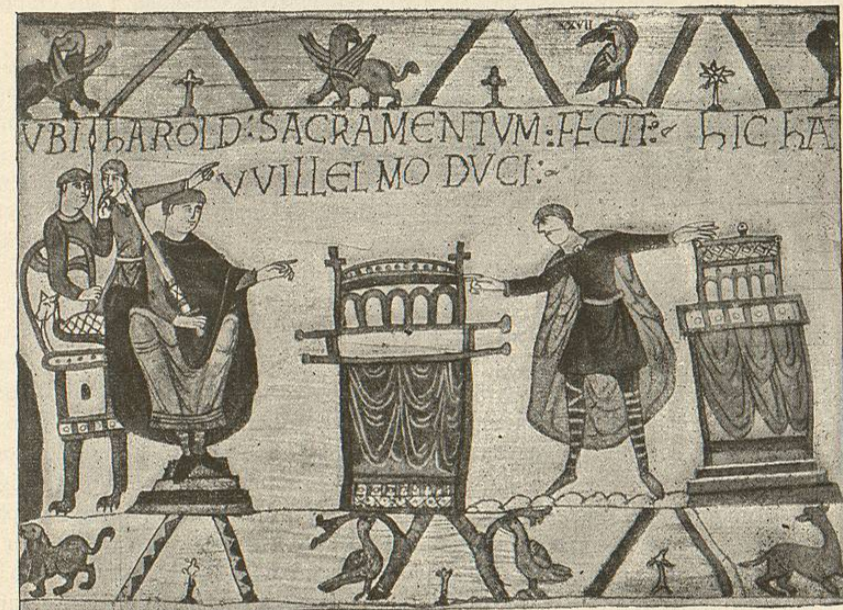 XXVII
UBI hAROLD: SACRAMENTVM: FECIT:~ hIC hA
VVILLELMO DVCI:~